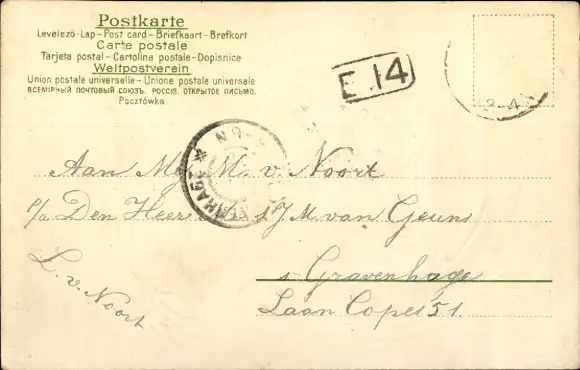 Postkarte
Levelező-Lap - Post card - Briefkaart - Brefkort
Carte postale
Tarjeta postal - Cartolina postale - Dopisnice
Weltpostverein
Union postale universelle - Unione postale universale
ВСЕМІРНЫЙ ПОЧТОВЫЙ СОЮЗЪ. РОССІЯ. ОТКРЫТОЕ ПИСЬМО.
Pocztówka.
E 14
Aan Mej M. v. Noort
p/a Den Heer s/J M. van Geuns
s Gravenhage
Laan Copes 51
L. v. Noort